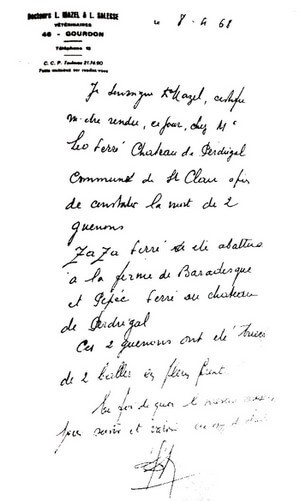 Docteurs L. MAZEL & L. SALESSE
VÉTÉRINAIRES
46 - GOURDON
Téléphone 12
C. C. P. Toulouse 21.74.90
le 8-4 68
Je soussigné Dr Mazel, certifie
m'être rendu, ce jour, chez Mr
Léo Ferré Chateau de Perdrigal
Commune de St Clair afin
de constater la mort de 2
guenons
ZaZa Ferré a été abattue
à la ferme de Baradesque
et Pépée Ferré au chateau
de Perdrigal
Ces 2 guenons ont été tuées
de 2 balles en plein front
En foi de quoi
pour servir et valoir